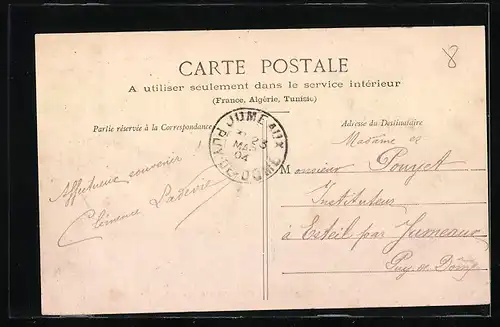 8
CARTE POSTALE
A utiliser seulement dans le service intérieur
(France, Algérie, Tunisie)
Partie réservée à la Correspondance
Adresse du Destinataire
JUMEAUX
23
MAR
04
PUY-DE-DOME
Madame et
Monsieur Pouget
Instituteur
à Esteil par Jumeaux
Puy de Dôme
Affectueux souvenir
Clémence